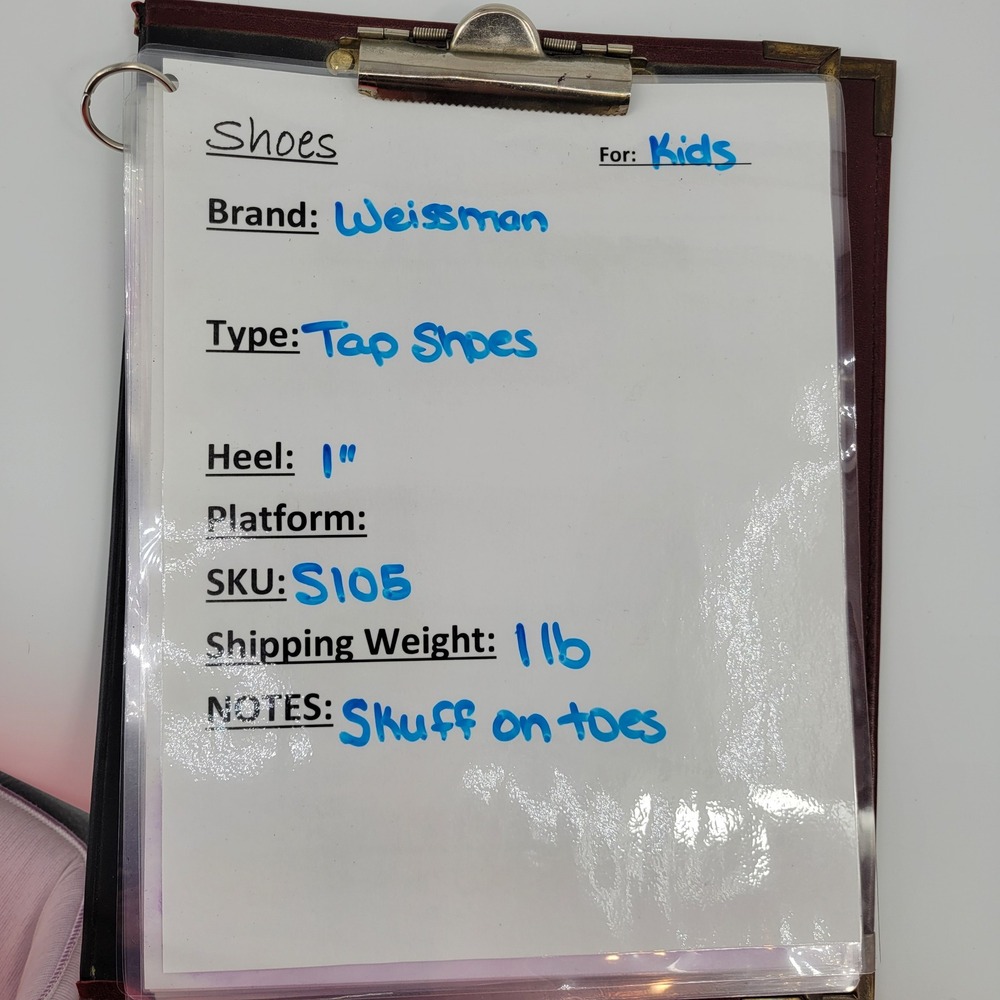 Shoes For: Kids
Brand: Weissman
Type: Tap Shoes
Heel: 1"
Platform:
SKU: S105
Shipping Weight: 1 lb
NOTES: Skuff on toes